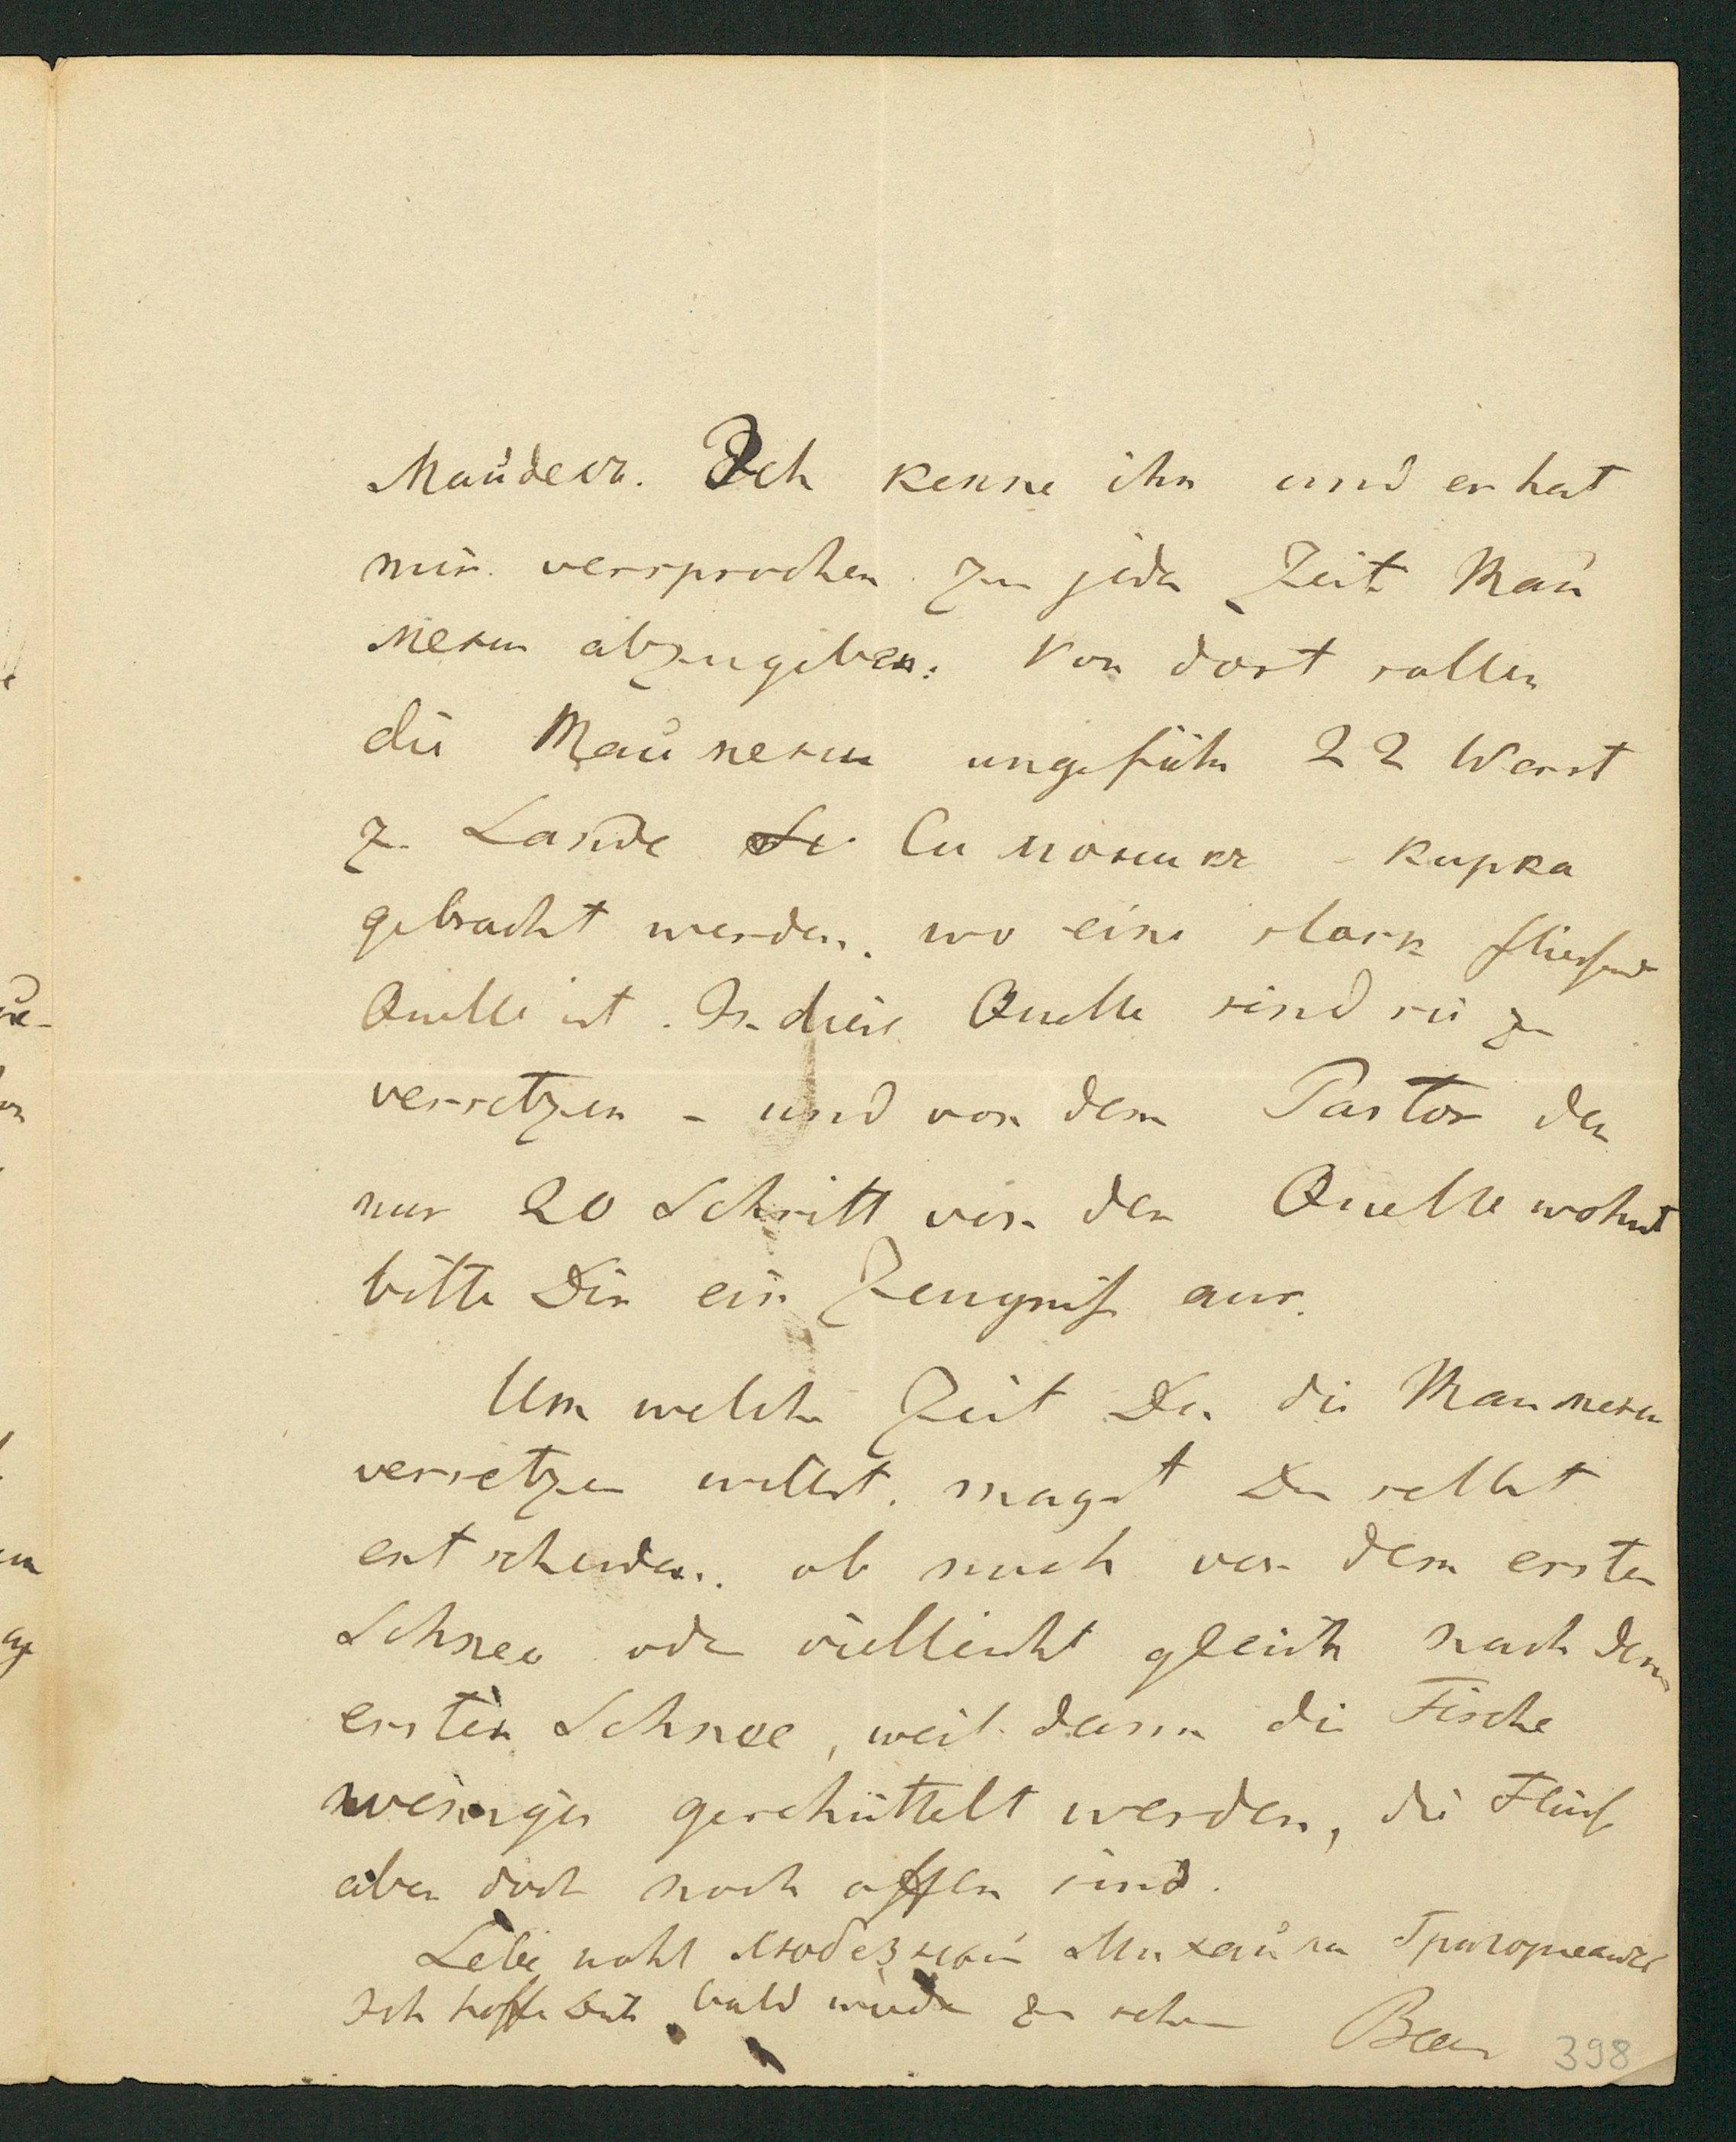 Майдель. Ich kenne ihn und er hat
mir versprochen zu jeder Zeit Май
мени abzugeben. Von dort sollen
die Маймени ungefähr 22 Werst
zu Lande St. Симонис - кирка
gebracht werden, wo eine stark fliessende
Quelle ist. In diese Quelle sind sie zu
versetzen – und von dem Pastor der
nur 20 Schritt von der Quelle wohnt
bitte Dir ein Zeugniß aus.
Um welche Zeit Du die Маймени
versetzen willst, magst Du selbst
entscheiden, ob noch vor dem ersten
Schnee oder vielleicht gleich nach dem
ersten Schnee, weil dann die Fische
weniger geschüttelt werden, die Flüsse
aber doch noch offen sind.
Lebe wohl любезный Михайла Григорьевич
Ich hoffe Dich bald wieder zu sehen Baer
398